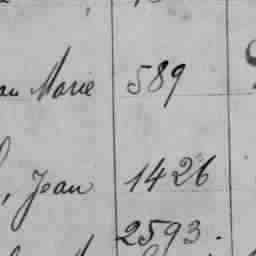 an Marie 589
, Jean 1426
2593.